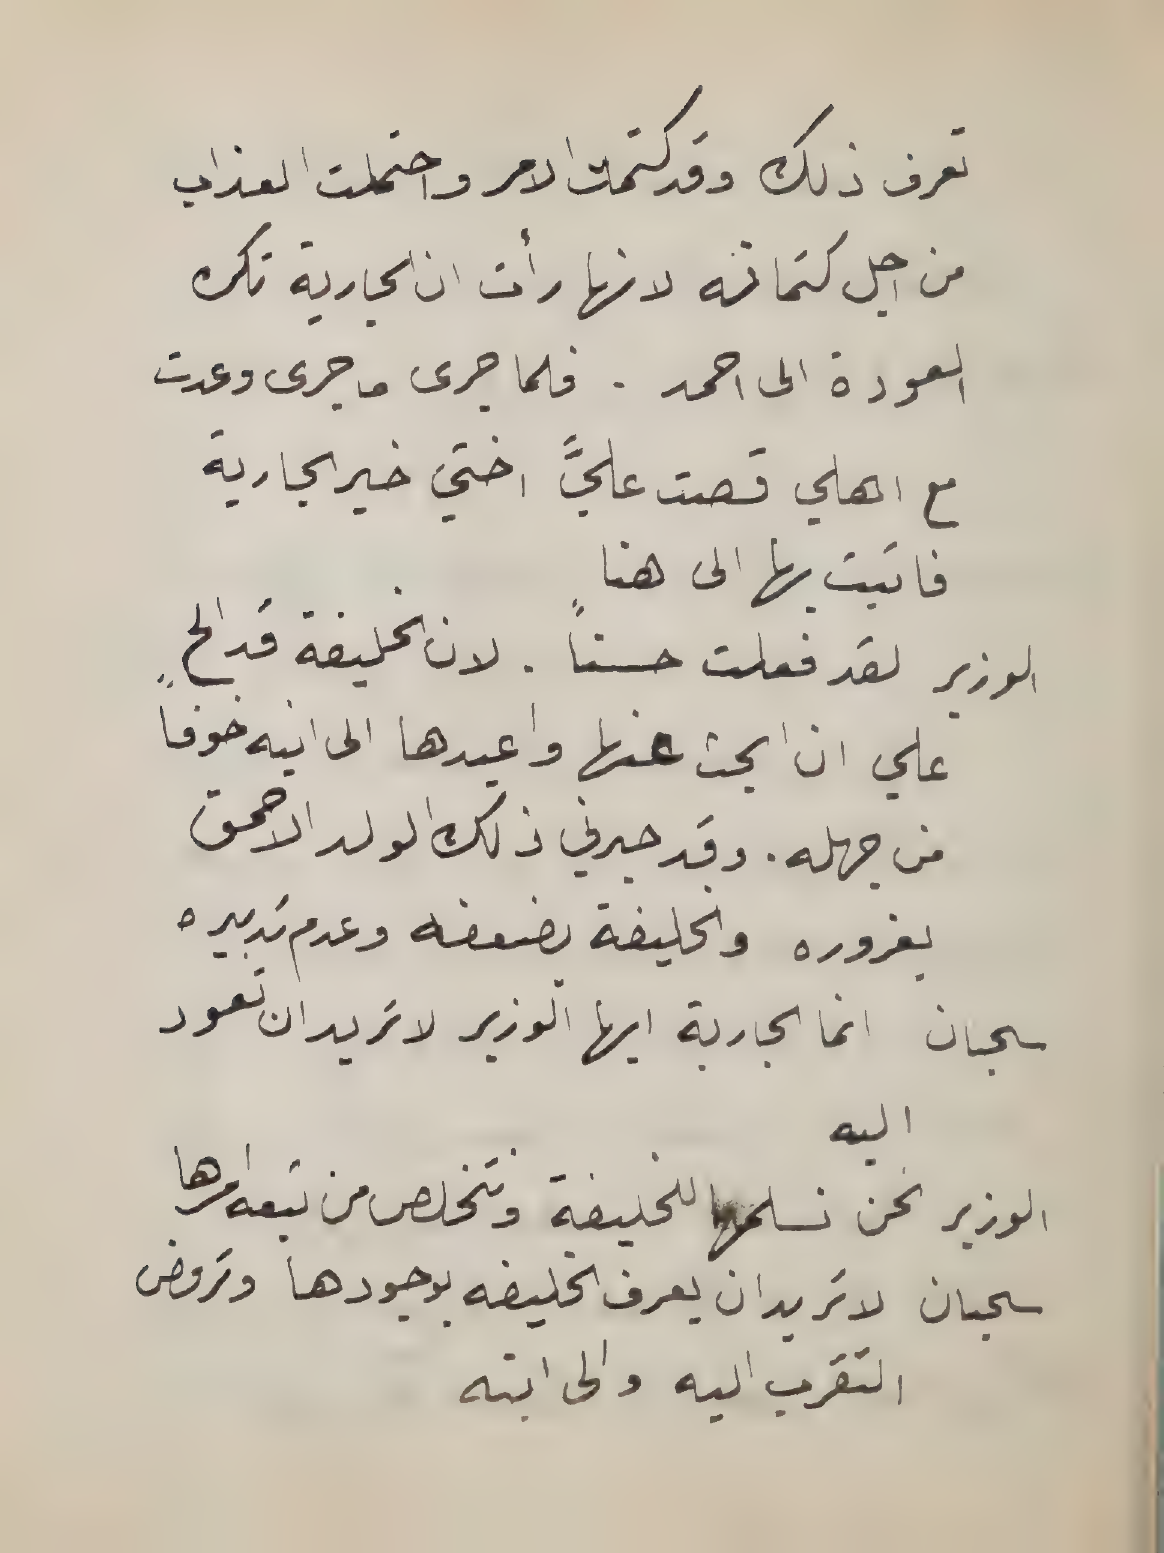 تعرف ذلك وقد كتمت الامر واحتملت العذاب
من اجل كتمانه لانها رأت ان الجارية تكره
العودة الى احمد . فلما جرى ما جرى وعدت
مع اهلي قصت عليَّ اختي خبر الجارية
فاتيت بها الى هنا
الوزير لقد فعلت حسناً . لان الخليفة قد الح
علي ان ابحث عنها واعيدها الى ابنه خوفاً
من جهله . وقد حيرني ذلك الولد الاحمق
بغروره والخليفة بضعفه وعدم تدبيره
سحبان انما الجارية ايها الوزير لا تريد ان تعود
اليه
الوزير نحن نسلمها للخليفة ونتخلص من تبعة امرها
سحبان لا تريد ان يعرف الخليفه بوجودها وترفض
التقرب اليه والى ابنه